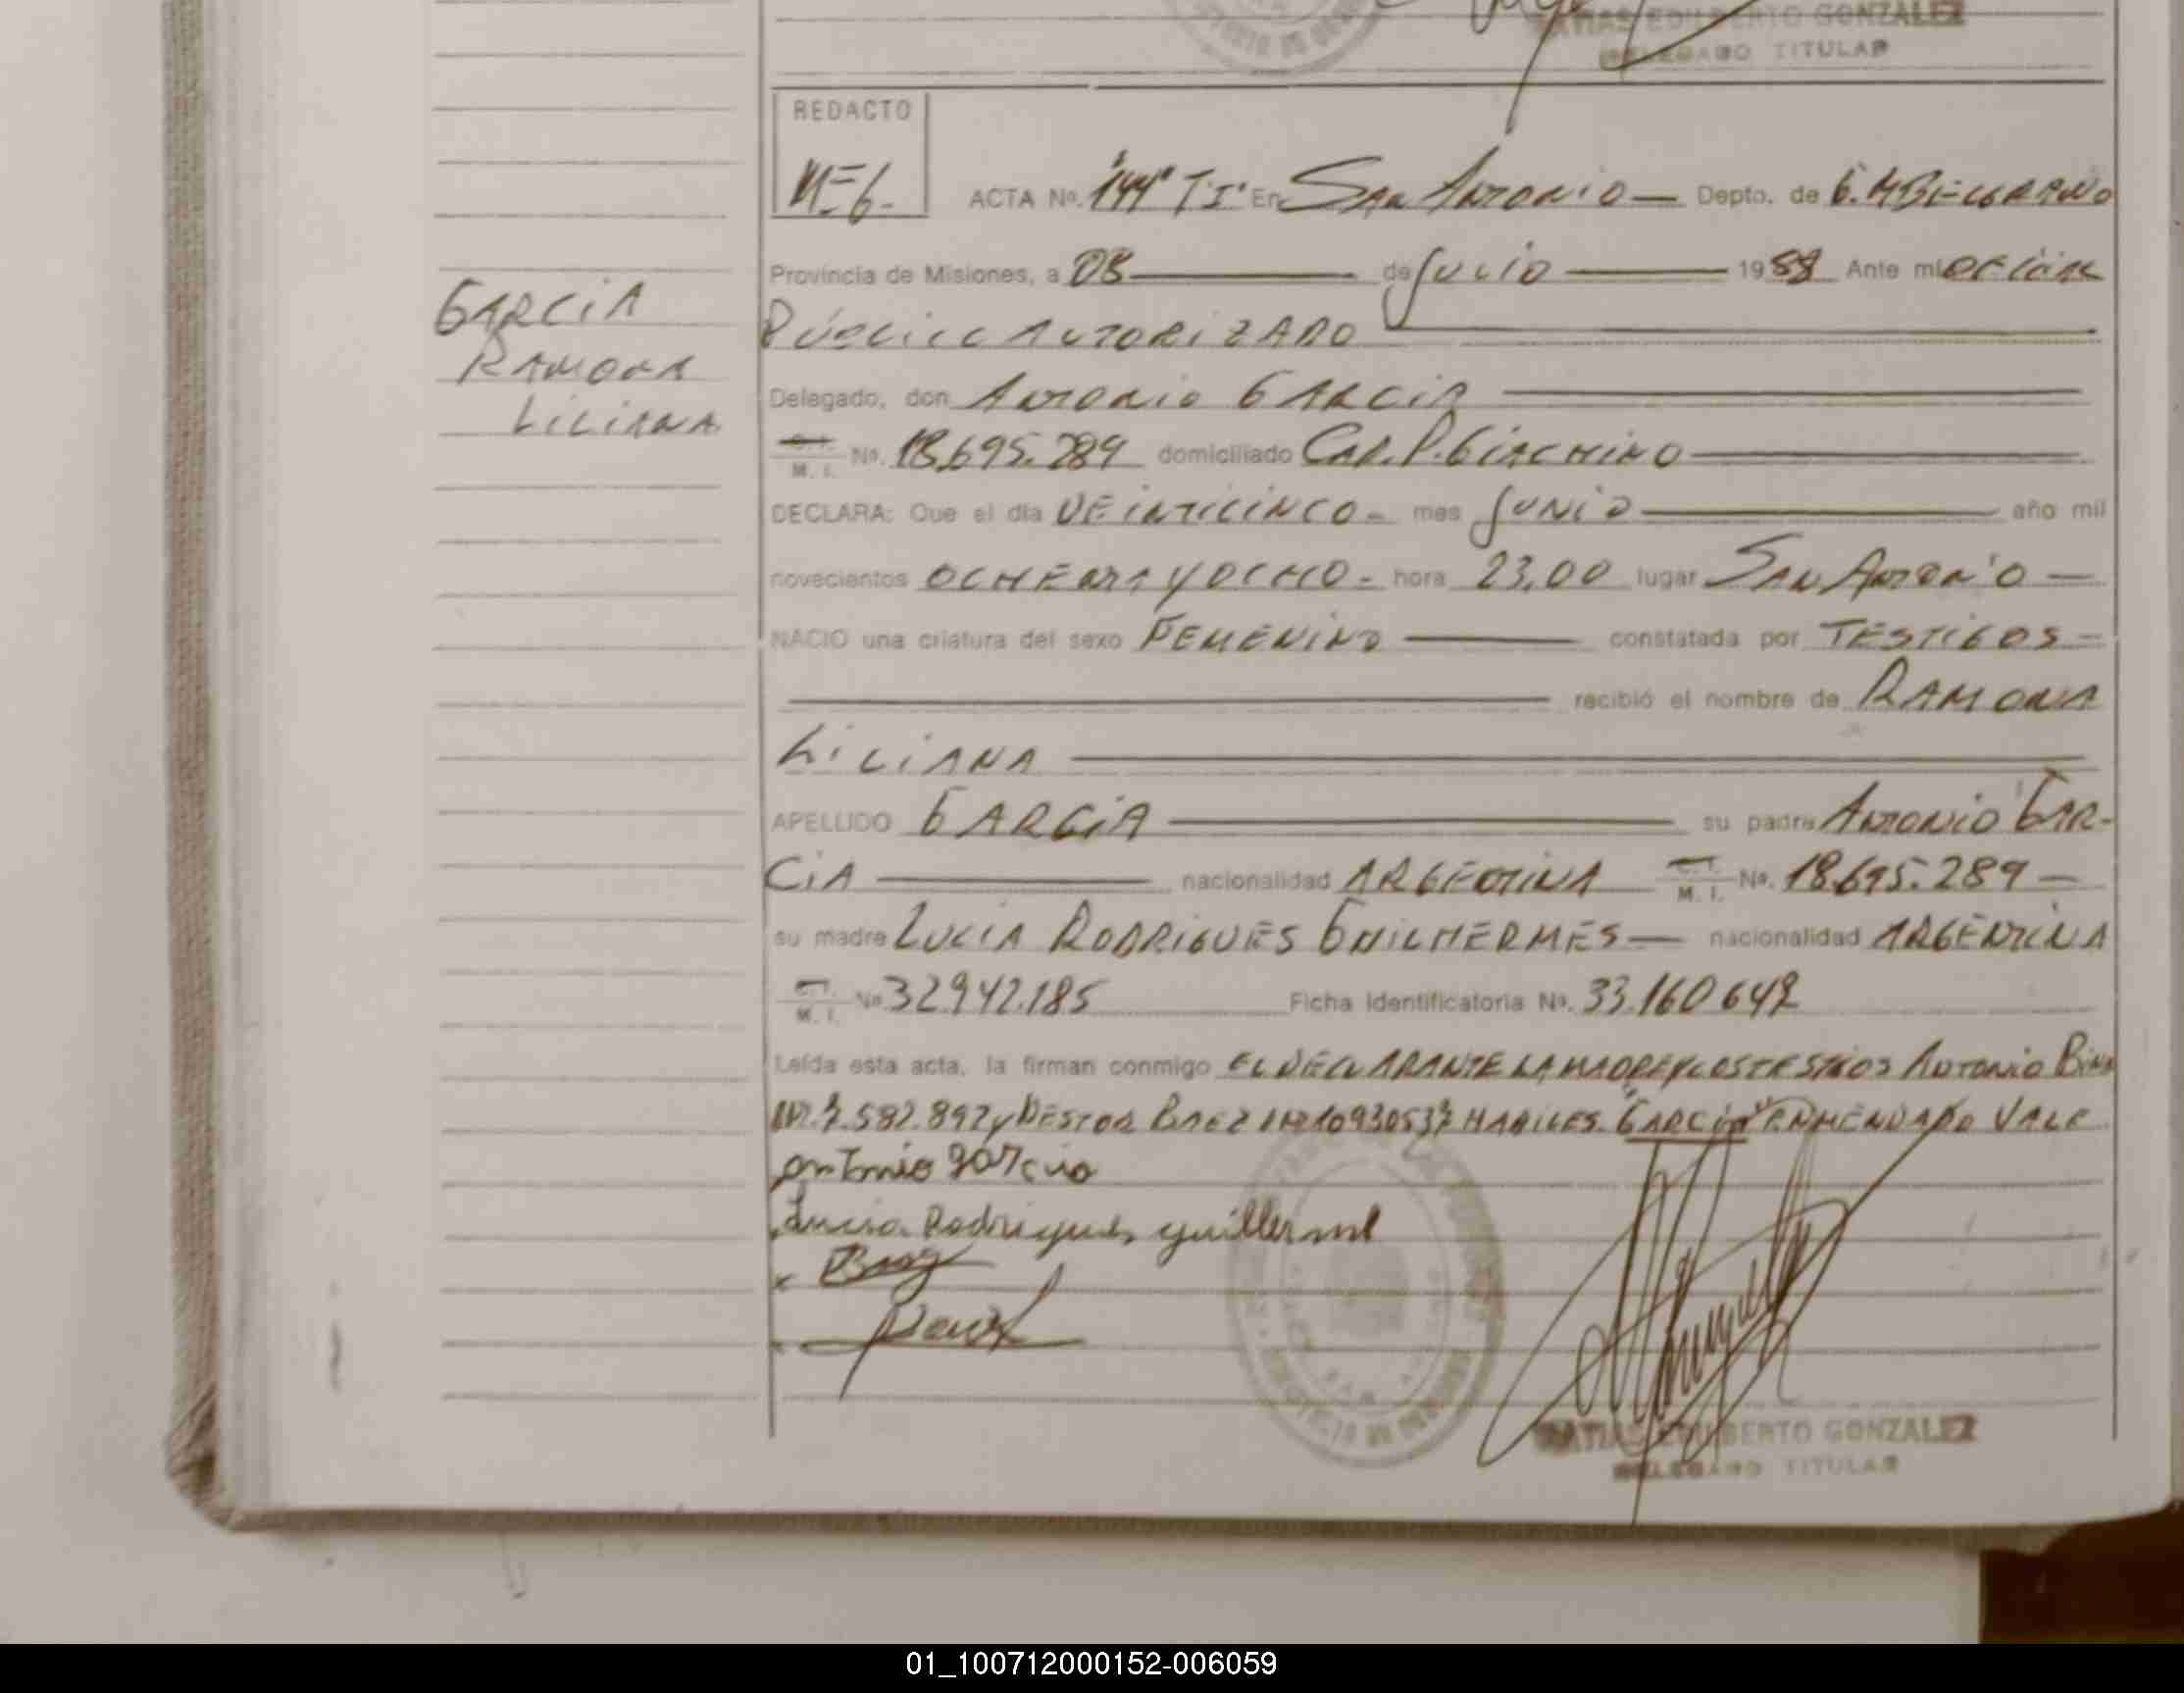 EDILBERTO GONZALEZ
DELEGADO TITULAR
REDACTO
M=G-
ACTA Nº. "144" T:I' En SAN ANTONIO — Depto. de G.M BELGRANO
Provincia de Misiones, a 08 de JULIO 1988 Ante mi OFICIAL
PÚBLICO AUTORIZADO
GARCIA
RAMONA
LILIANA
Delegado, don ANTONIO GARCIA
C.I.
M. I. Nº. 18.695.289 domiciliado CAP. P. GIACHINO
DECLARA: Que el día VEINTICINCO - mes JUNIO año mil
novecientos OCHENTA Y OCHO - hora 23,00 lugar SAN ANTONIO —
NACIO una criatura del sexo FEMENINO constatada por TESTIGOS -
recibió el nombre de RAMONA
LILIANA
APELLIDO GARCIA su padre ANTONIO GAR-
CIA nacionalidad ARGENTINA C.I.
M. I. Nº. 18.695.289 —
su madre LUCIA RODRIGUES GUILHERMES — nacionalidad ARGENTINA
C.I.
M. I. Nº 32.942.185 Ficha Identificatoria Nº. 33.160.647
Leída esta acta, la firman conmigo EL DECLARANTE LA MADRE Y LOS TESTIGOS ANTONIO
.582.897 y NESTOR BAEZ 10930537 HABILES. "GARCIA" ENMENDADO VALE
antonio garcia
Lucia Rodrigues guillermel
Baez
MATIAS EDILBERTO GONZALEZ
DELEGADO TITULAR
01_100712000152-006059